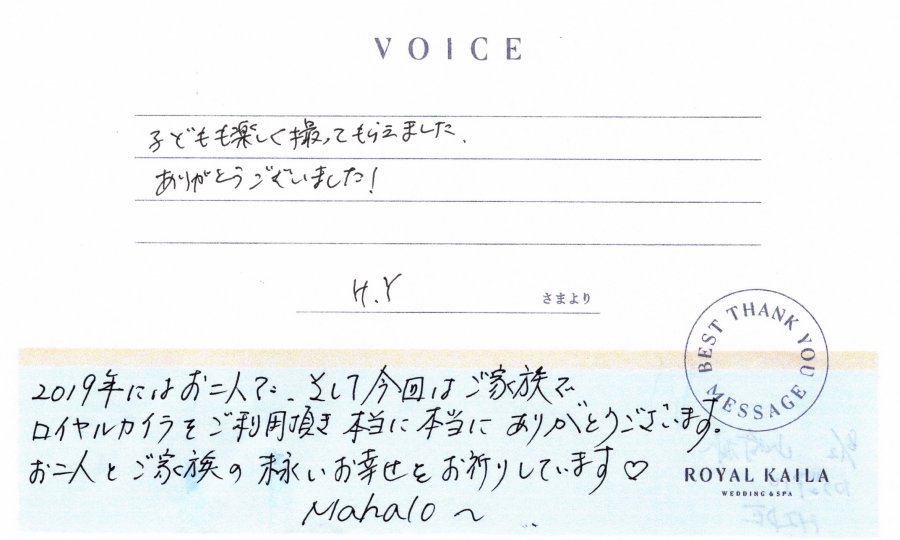 VOICE
子どもも楽しく撮ってもらえました.
ありがとうございました!
H.Y さまより
BEST THANK YOU MESSAGE
2019年にはお二人で、そして今回はご家族で
ロイヤルカイラをご利用頂き 本当に本当に ありがとうございます。
お二人とご家族の末永いお幸せをお祈りしています♡
ROYAL KAILA
WEDDING & SPA
Mahalo〜